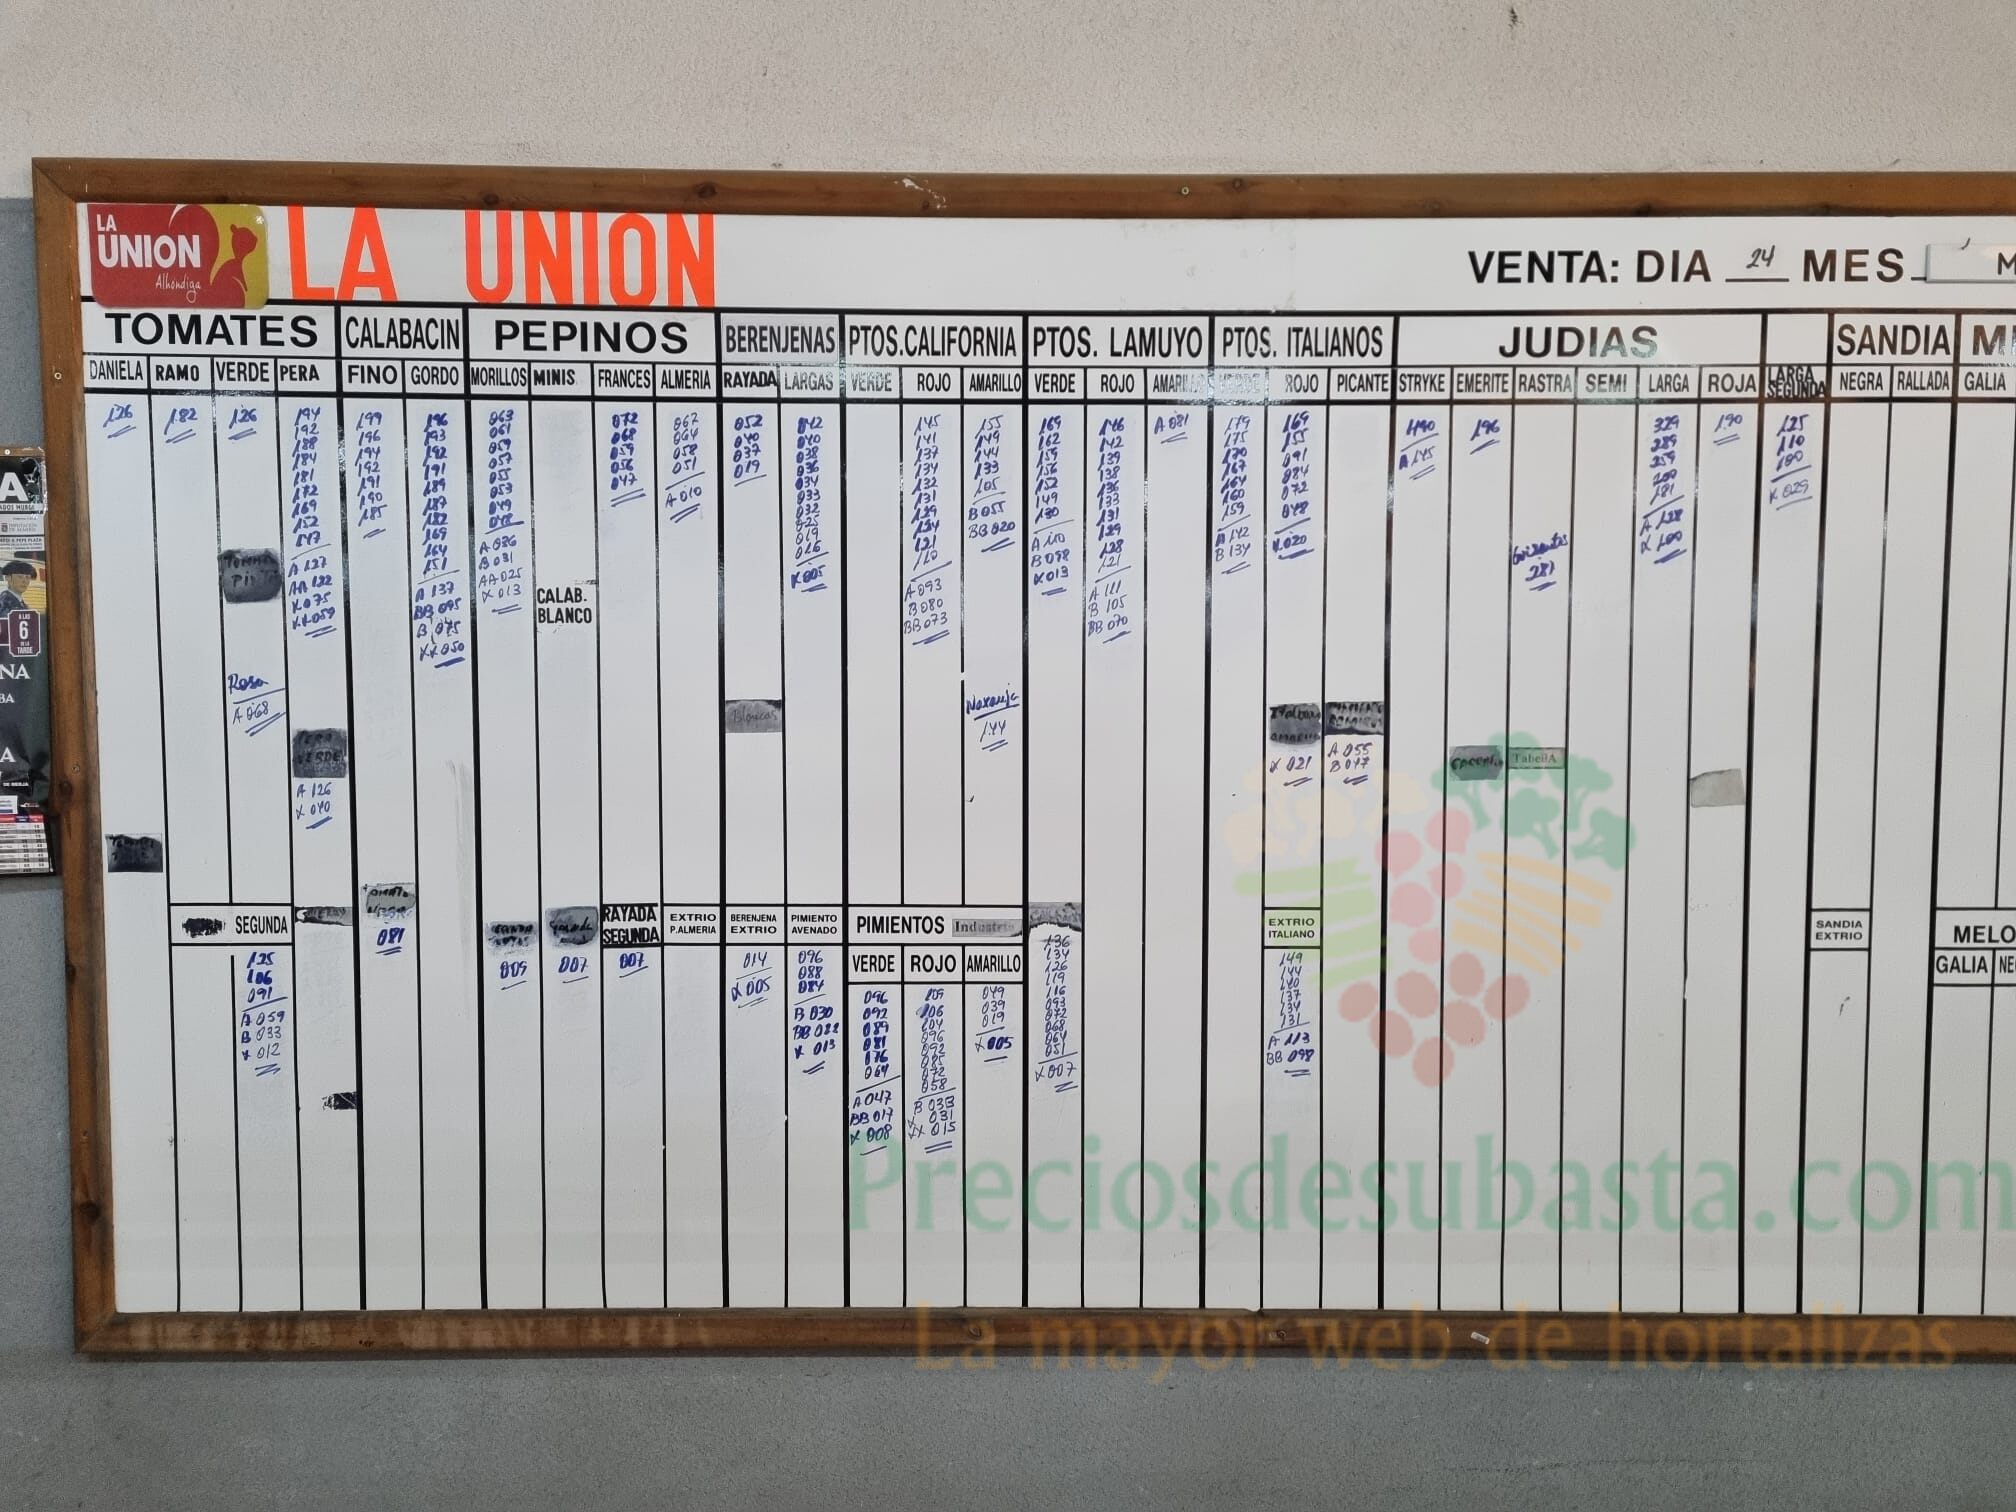 LA
UNION
Alhóndiga
LA UNION
VENTA: DIA 24 MES
TOMATES
CALABACIN
PEPINOS
BERENJENAS
PTOS.CALIFORNIA
PTOS. LAMUYO
PTOS. ITALIANOS
JUDIAS
LARGA
SEGUNDA
SANDIA
DANIELA RAMO VERDE PERA
FINO GORDO
MORILLOS MINIS. FRANCES ALMERIA
RAYADA LARGAS
VERDE ROJO AMARILLO
VERDE ROJO
ROJO PICANTE
STRYKE EMERITE RASTRA SEMI LARGA ROJA
NEGRA RALLADA
GALIA
126
182
126
194
192
188
184
181
172
169
152
147
A 127
AA 122
X 075
XX 059
199
196
194
192
191
190
185
196
193
192
191
189
187
182
169
164
151
A 137
BB 095
B 075
XX 050
063
061
059
057
055
053
049
A 036
B 031
AA 025
X 013
CALAB.
BLANCO
072
068
059
056
047
067
064
058
051
A 010
052
040
037
019
042
040
038
036
034
033
032
025
019
016
X 005
145
141
137
134
132
131
129
124
121
110
A 093
B 080
BB 073
155
149
144
133
105
B 055
BB 020
Naranja
144
169
162
159
156
152
149
130
A 110
B 098
X 013
146
142
139
138
136
133
131
129
128
121
A 111
B 105
BB 070
A 081
179
175
170
167
164
160
159
A 142
B 134
169
155
091
084
072
048
X 020
X 021
A 055
B 047
490
A 145
196
281
TabellA
329
289
259
200
181
A 128
X 100
190
125
110
100
X 029
Rosa
A 068
PERA
VERDE
A 126
X 040
SEGUNDA
125
106
091
A 059
B 033
X 012
081
009
007
RAYADA
SEGUNDA
007
EXTRIO
P.ALMERIA
BERENJENA
EXTRIO
014
X 005
PIMIENTO
AVENADO
096
088
084
B 030
BB 022
X 013
PIMIENTOS
VERDE ROJO AMARILLO
096
092
089
081
176
064
A 047
BB 017
X 008
109
106
104
096
092
085
072
058
B 033
X 031
XX 015
049
039
019
X 005
136
134
126
119
116
093
072
068
064
051
X 007
EXTRIO
ITALIANO
149
144
140
137
134
131
A 113
BB 098
SANDIA
EXTRIO
GALIA
Preciosdesubasta.com
La mayor web de hortalizas